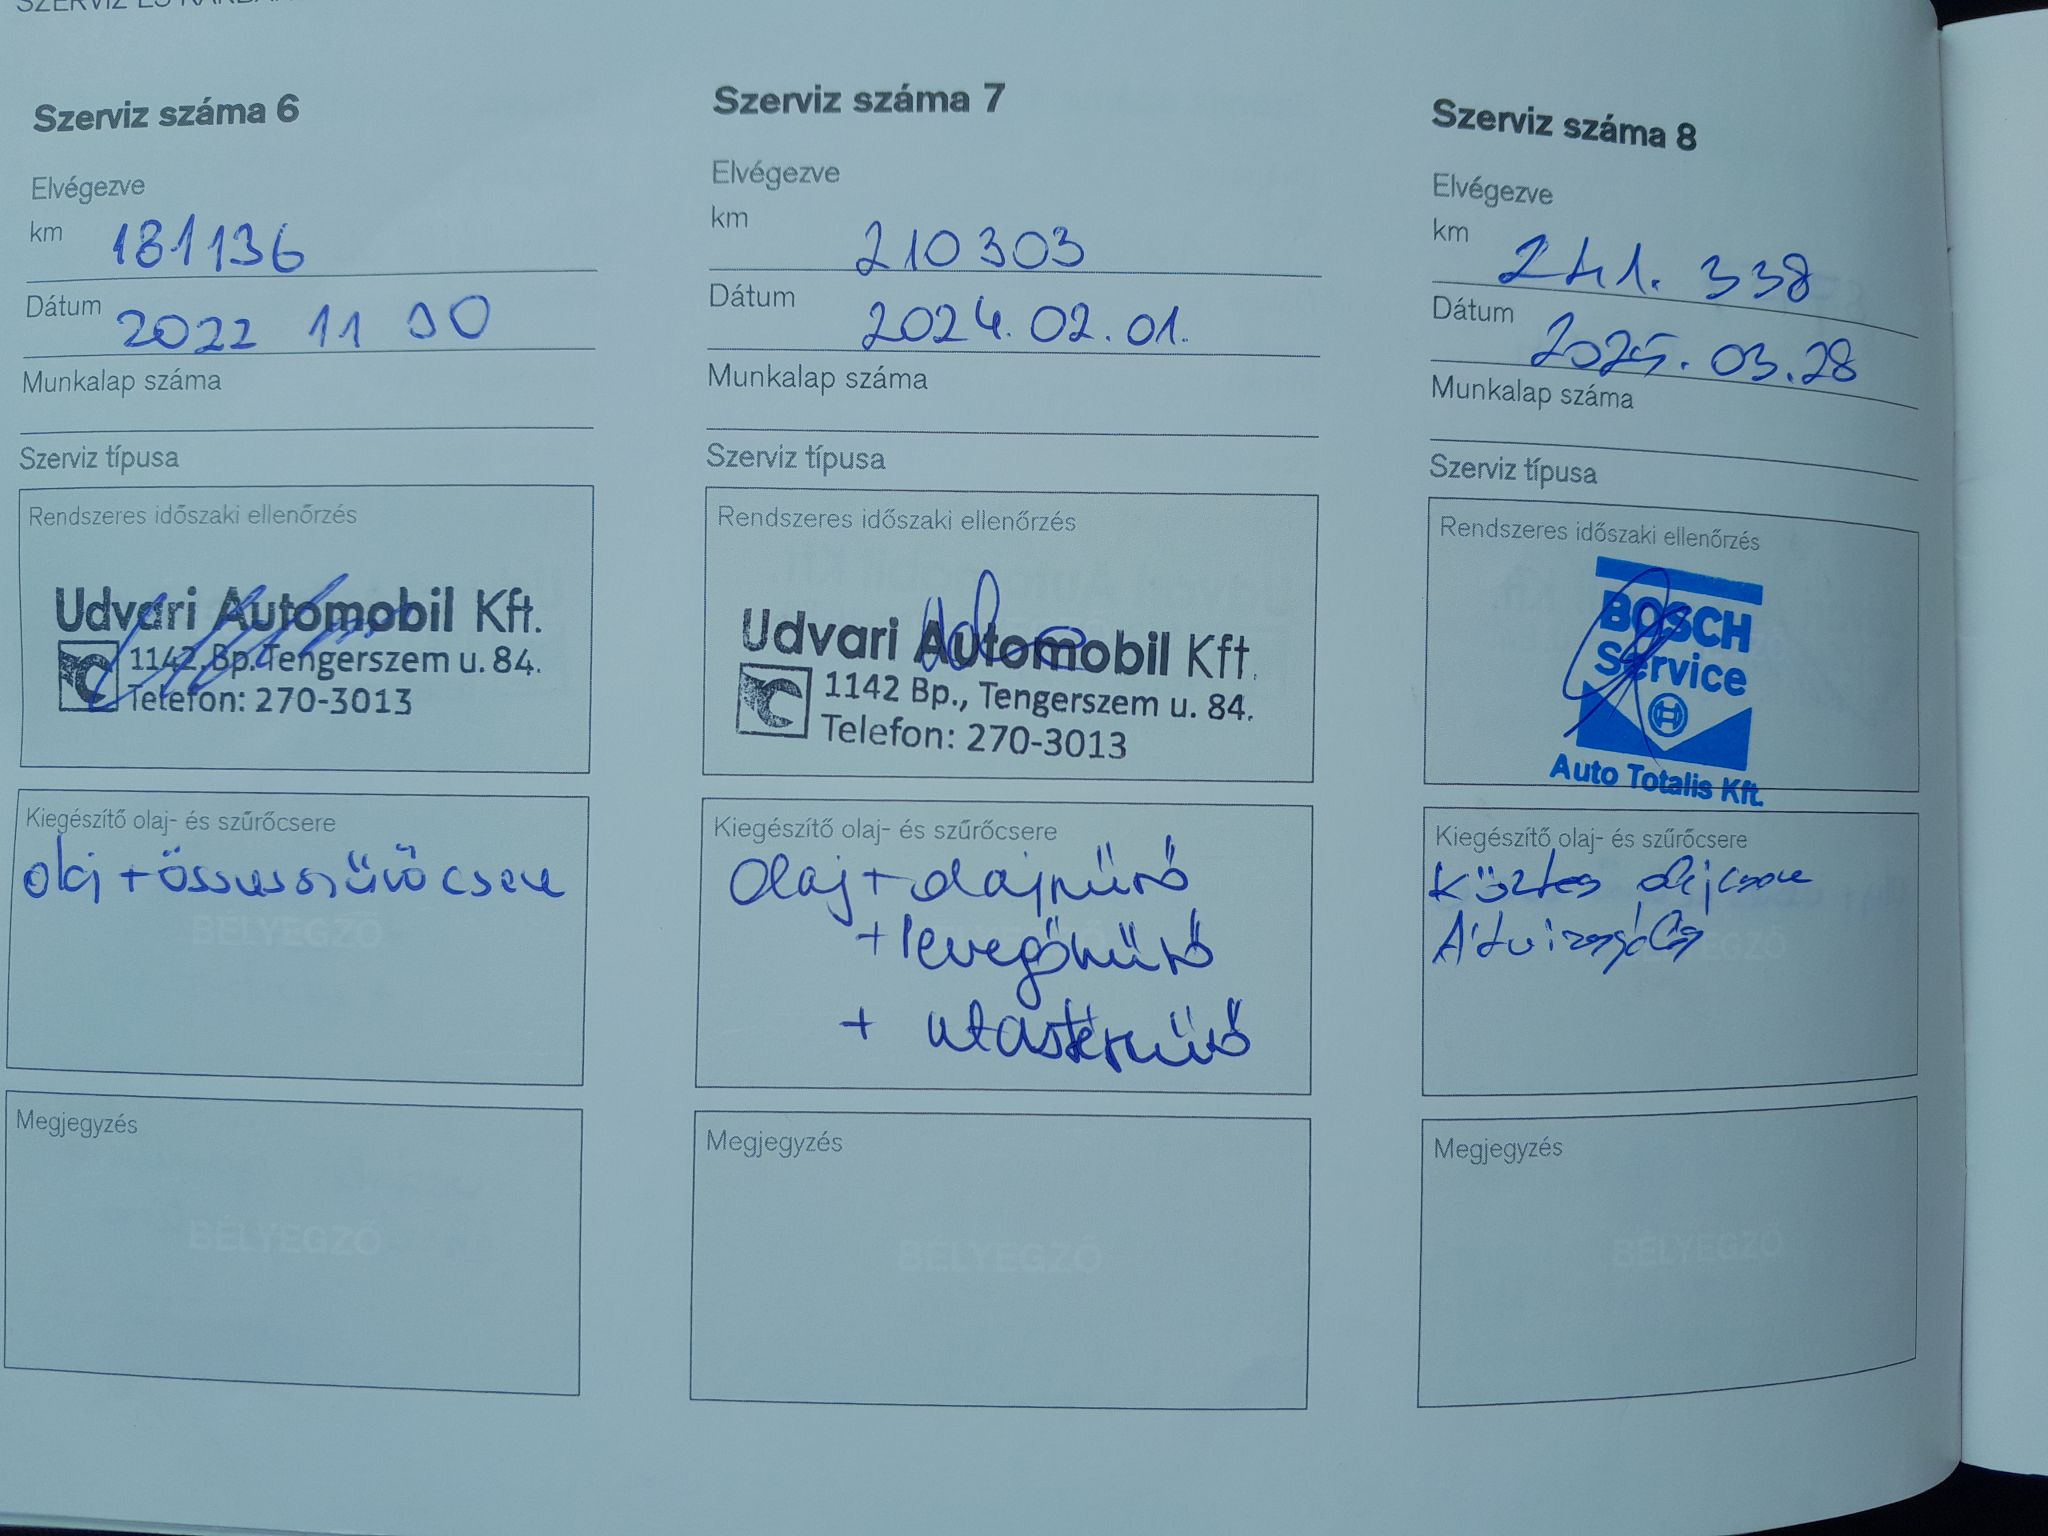 Szerviz száma 6
Elvégezve
km 181136
Dátum 2022 11 30
Munkalap száma
Szerviz típusa
Rendszeres időszaki ellenőrzés
Udvari Automobil Kft.
1142 Bp. Tengerszem u. 84.
Telefon: 270-3013
Kiegészítő olaj- és szűrőcsere
olaj + összes szűrő csere
BÉLYEGZŐ
Megjegyzés
BÉLYEGZŐ
Szerviz száma 7
Elvégezve
km 210303
Dátum 2024.02.01.
Munkalap száma
Szerviz típusa
Rendszeres időszaki ellenőrzés
Udvari Automobil Kft.
1142 Bp., Tengerszem u. 84.
Telefon: 270-3013
Kiegészítő olaj- és szűrőcsere
Olaj + olajszűrő
+ levegőszűrő
+ utastérszűrő
Megjegyzés
BÉLYEGZŐ
Szerviz száma 8
Elvégezve
km 241.338
Dátum 2025.03.28
Munkalap száma
Szerviz típusa
Rendszeres időszaki ellenőrzés
BOSCH
Service
Auto Totalis Kft.
Kiegészítő olaj- és szűrőcsere
Köztes olajcsere
Átvizsgálás
Megjegyzés
BÉLYEGZŐ